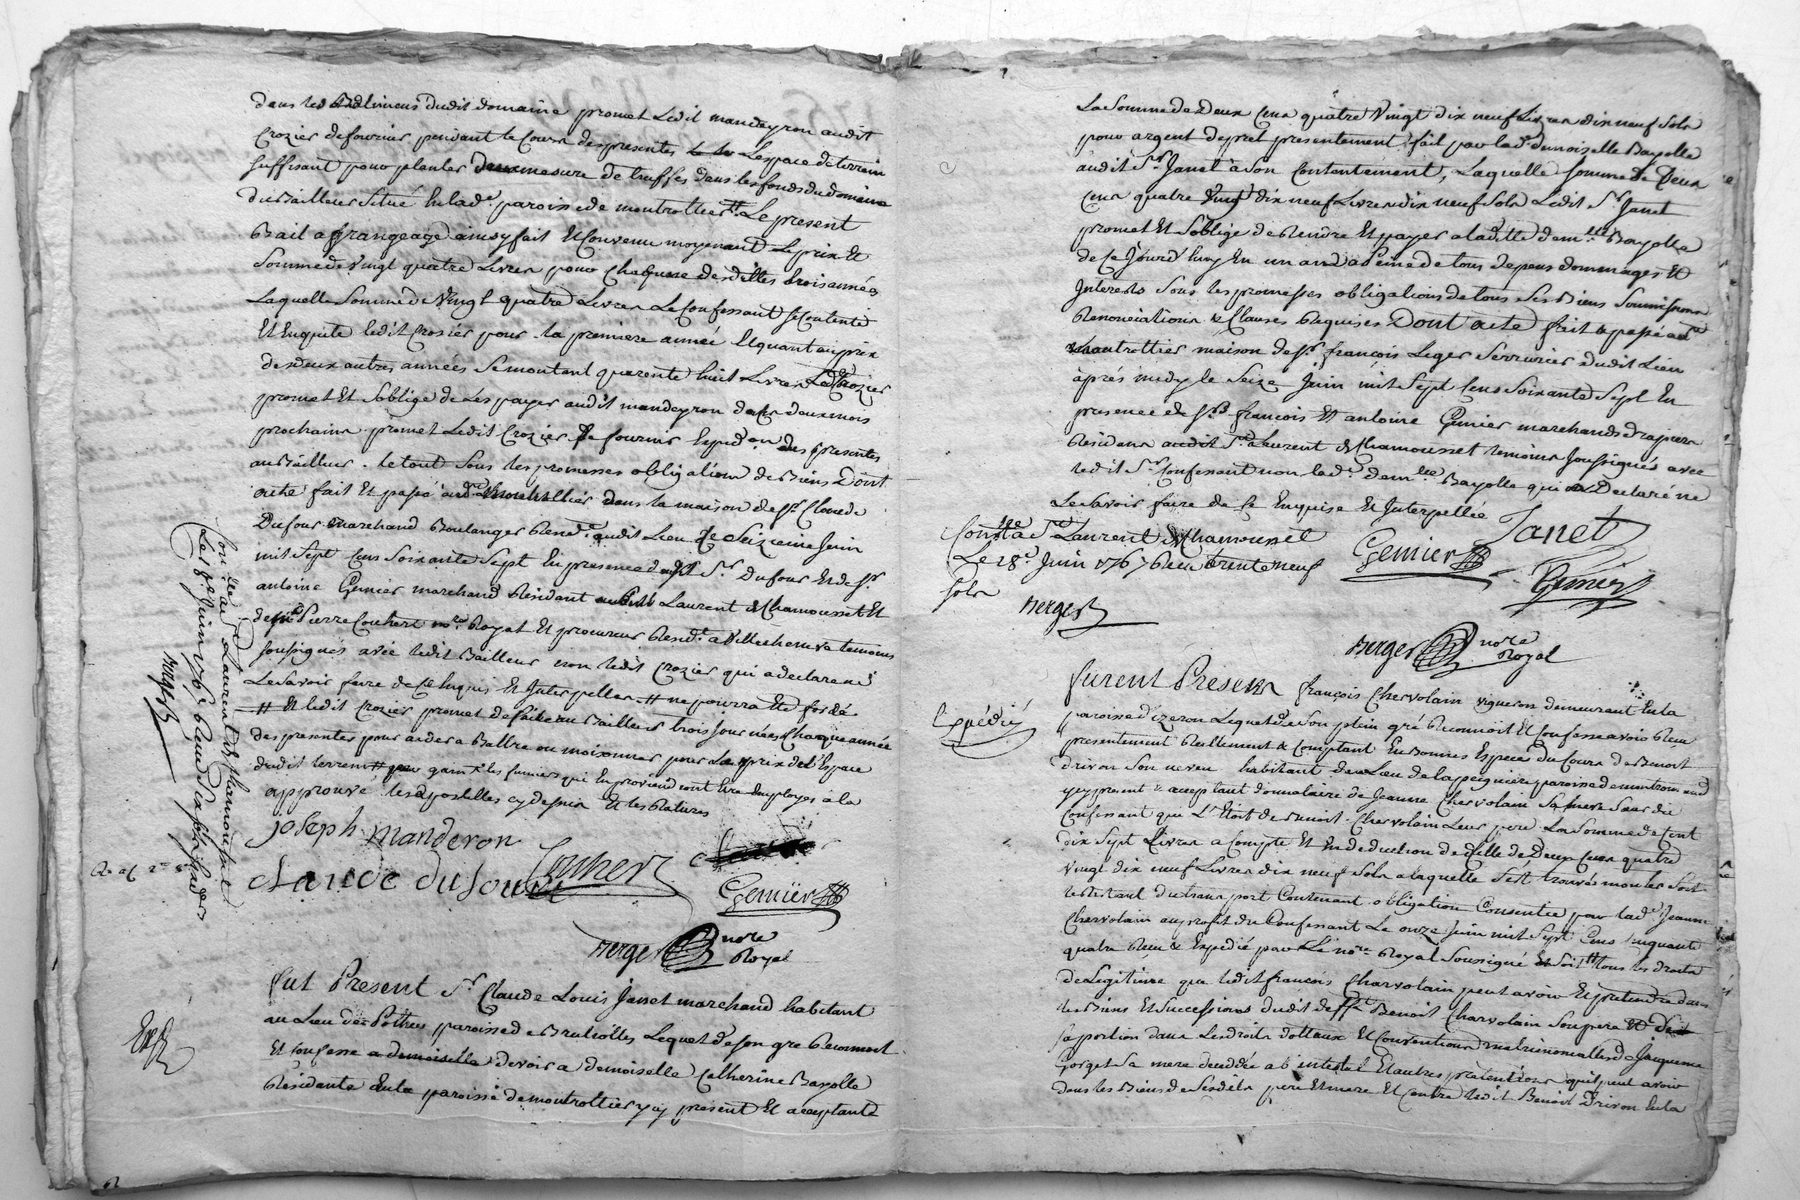 dans les Batimens dudit domaine promet Ledit mandeyron audit
Crozier de fournir pendant le Cours des presentes Lespace de terrein
suffisant pour planter deux mesure de truffes dans les fonds du domaine
du Bailleur Situé En lad. paroisse de montrottier Le present
Bail a frangeage ainsy fait Et Convenu moyenant Le prix Et
Somme de Vingt quatre Livres pour Chaqune desdittes trois années
Laquelle Somme de Vingt quatre Livres Le Confessant se Contente
Et Enquitte ledit Crozier pour la premiere année Et quant au prix
des deux autres années Se montant quarente huit Livres Led. Crozier
promet Et Soblige de Les payer audit mandeyron dans deux mois
prochains promet Ledit Crozier de fournir Exped.on des presentes
au Bailleur. le tout Sous les promesses obligations de Biens Dont
acte fait Et passé aud. montrottier dans la maison de Sr. Claude
Dufour marchand Boulanger Resid.t audit Lieu Le Seizieme Juin
mil Sept Cens Soixante Sept En presence dudit Sr. Dufour Et de Sr.
antoine Gemier marchand Residant au St Laurent de Chamousset Et
de Me Pierre Couhert no.re Royal Et procureur Resid.t a Villecheneve temoins
soussignés avec ledit Bailleur non ledit Crozier qui a declaré ne
Le Savoir faire de Ce Enquis Et Interpellé # ne pourra
# Et ledit Crozier promet de faire au Bailleur trois journées Chaque année
des presentes pour aider a Battre ou moissonner pour Le prix de l'Espace
dudit terrein les fumiers qui En proviendront Etre Employés à la
approuvé les apostilles cy dessus Et les Ratures
joseph manderon
claude dufour Couhert
Gemier
Berger no.re Royal
Con.lé a St Laurent de Chamousset
Le 18e Juin 1767
Berger
Fut Present Sr. Claude Louis Janet marchand habitant
au Lieu des Pothus paroisse de Brulliolles Lequel de Son gre Reconnoit
Et Confesse a demoiselle devoir a demoiselle Catherine Bayolle
Residante En la paroisse de montrottier y cy present Et acceptante
Exp
La Somme de Deux Cens quatre Vingt dix neuf Livres dix neuf Sols
pour argent de pret presentement fait par lad. demoiselle Bayolle
audit Sr. Janet à Son Contentement, Laquelle Somme de Deux
Cens quatre Vingt dix neuf Livres dix neuf Sols Ledit Sr. Janet
promet Et Soblige de Rendre Et payer a laditte dem.lle Bayolle
de Ce Jourd'huy En un an a peine de tous depens dommages Et
Interets Sous les promesses obligations de tous Ses Biens Soumissions
Renonciations & Clauses Requises Dont acte fait & passé aud.
montrottier maison de Sr. françois Leger Serrurier dudit Lien
après midy le Seize Juin mil Sept Cens Soixante Sept En
presence de Srs. françois Et antoine Gemier marchands drapiers
Residans audit St. Laurent de Chamousset temoins Soussignés avec
ledit Sr. Confessant non lad. dem.lle Bayolle qui a Declaré ne
Le Savoir faire de Ce Enquise Et Interpellée
Janet
Gemier
Gemier
Con.lé a St Laurent de Chamousset
Le 18e. Juin 1767 Recu trente neuf
Sols
Berger
Berger no.re Royal
Furent Presens françois Chervolain vigneron demeurant En la
paroisse d'izeron Lequel de Son plein gré Reconnoit Et Confesse avoir Recu
presentement Reellement & Comptant En Bonnes Especes du Cours de Benoit
Drivon Son neveu habitant du Lieu de la paroisse de montromand
y cy present & acceptant donnataire de Jeanne Chervolain Sa mere Sœur du
Confessant que L'Etoit de Benoit Chervolain Leur pere La Somme de Cent
dix Sept Livres a Compte Et En deduction de Celle de Deux Cens quatre
Vingt dix neuf Livres dix neuf Sols a laquelle S'est trouvée monter Soit
Expédié
le Restant du transport Contenant obligation Consentie par lad. Jeanne
Chervolain au profit du Confessant Le onze Juin mil Sept Cens Cinquante
quatre Recu & Expedié par Le no.re Royal Soussigné tous les droits
de Legitime que ledit françois Chervolain peut avoir Et pretendre dans
les Biens Et Successions dudit defft. Benoit Chervolain Son pere
Sa portion dans Les droits dottaux Et Conventions matrimonialles de Jacqueme
Gorget Sa mere decedée ab intestat Et autres pretentions quil peut avoir
dans les Biens de Sesdits pere Et mere Et Contre ledit Benoit Drivon En la